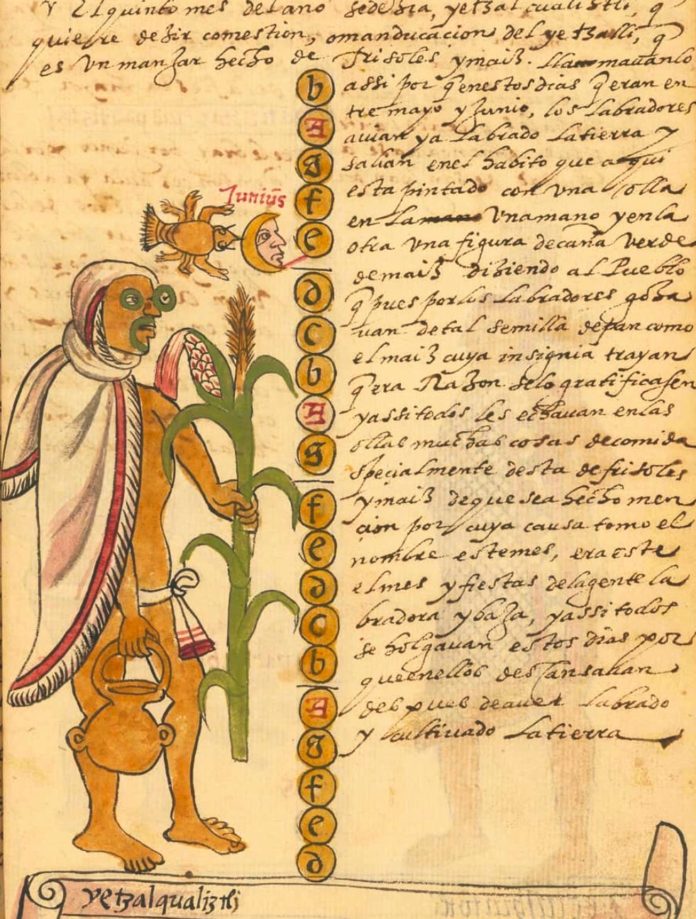 y El quinto mes del ano se dezia, yetzalcualiztli, q
quiere dezir comestion, omanducacion del yetzalli, q
es Vn manjar hecho de frisoles ymaiz. llamauanlo
assi por q enestos dias q eran en
tre mayo y Junio, los labradores
auian ya labrado latierra y
salian enel habito que aqui
esta pintado con vna olla
en la Vnamano yenla
otra vna figura decaña verde
demaiz diziendo al Pueblo
q pues por los labradores goza
uan detal semilla depan como
elmaiz cuya insignia trayan
q era Razon selo gratificasen
yassitodos les echauan enlas
ollas muchas cosas decomida
specialmente desta defrisoles
ymaiz deque sea hecho men
cion por cuya causa tomo el
nombre estemes, era este
elmes yfiestas delagente la
bradora ybaxa, yassi todos
se holgauan estos dias por
queenellos descansauan
despues deauer labrado
y cultiuado latierra
Junius
b
A
g
f
e
d
c
b
A
g
f
e
d
c
b
A
g
f
e
d
yetzalqualiztli